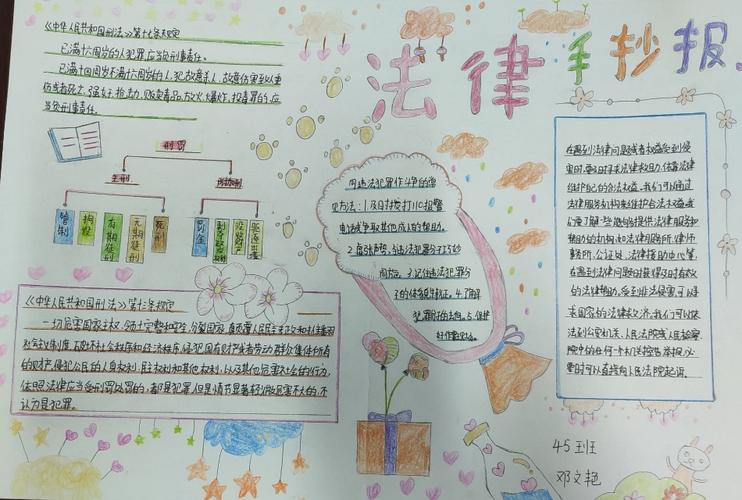 法律手抄报
《中华人民共和国刑法》第十七条规定
已满十六周岁的人犯罪,应当负刑事责任。
已满十四周岁不满十六周岁的人,犯故意杀人、故意伤害致人重
伤或者死亡、强奸、抢劫、贩卖毒品、放火、爆炸、投毒罪的,应
当负刑事责任。
刑罚
主刑
附加刑
管制
拘役
有期徒刑
无期徒刑
死刑
罚金
剥夺政治权利
没收财产
驱逐出境
《中华人民共和国刑法》第十三条规定
一切危害国家主权、领土完整和安全,分裂国家、颠覆人民民主专政的政权和推翻
社会主义制度,破坏社会秩序和经济秩序,侵犯国有财产或者劳动群众集体所有
的财产,侵犯公民的人身权利、民主权利和其他权利,以及其他危害社会的行为,
依照法律应当受刑罚处罚的,都是犯罪,但是情节显著轻微危害不大的,不
认为是犯罪。
同违法犯罪作斗争的常
见方法:1.及时拨打110报警
电话或争取其他成人的帮助。
的体貌
4.了解
5.保护
好作案现场。
在遇到法律问题或者权益受到侵
害时,要及时寻求法律救助,依靠法律
维护自己的合法权益。我们可以通过
法律服务机构来维护合法权益,我
们要了解一些能够提供法律服务和
帮助的机构,如法律服务所、律师
事务所、公证处、法律援助中心等,
在遇到法律问题时,获得及时有效
的法律帮助。受到非法侵害,可以寻
求国家的法律救济,我们可以依
法到公安机关、人民法院或人民检察
院中的任何一个机关控告、举报,必
要时可以直接向人民法院起诉。
45班
邓文艳